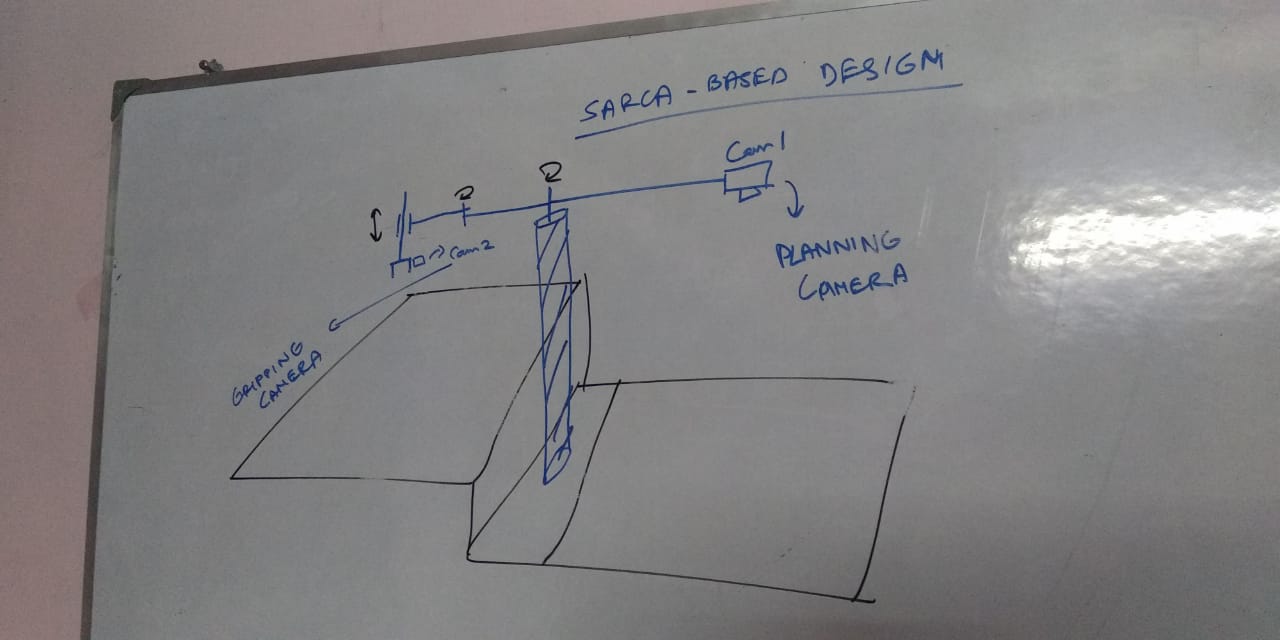 SARCA - BASED DESIGN
Cam 1
Cam 2
PLANNING
CAMERA
GRIPPING
CAMERA